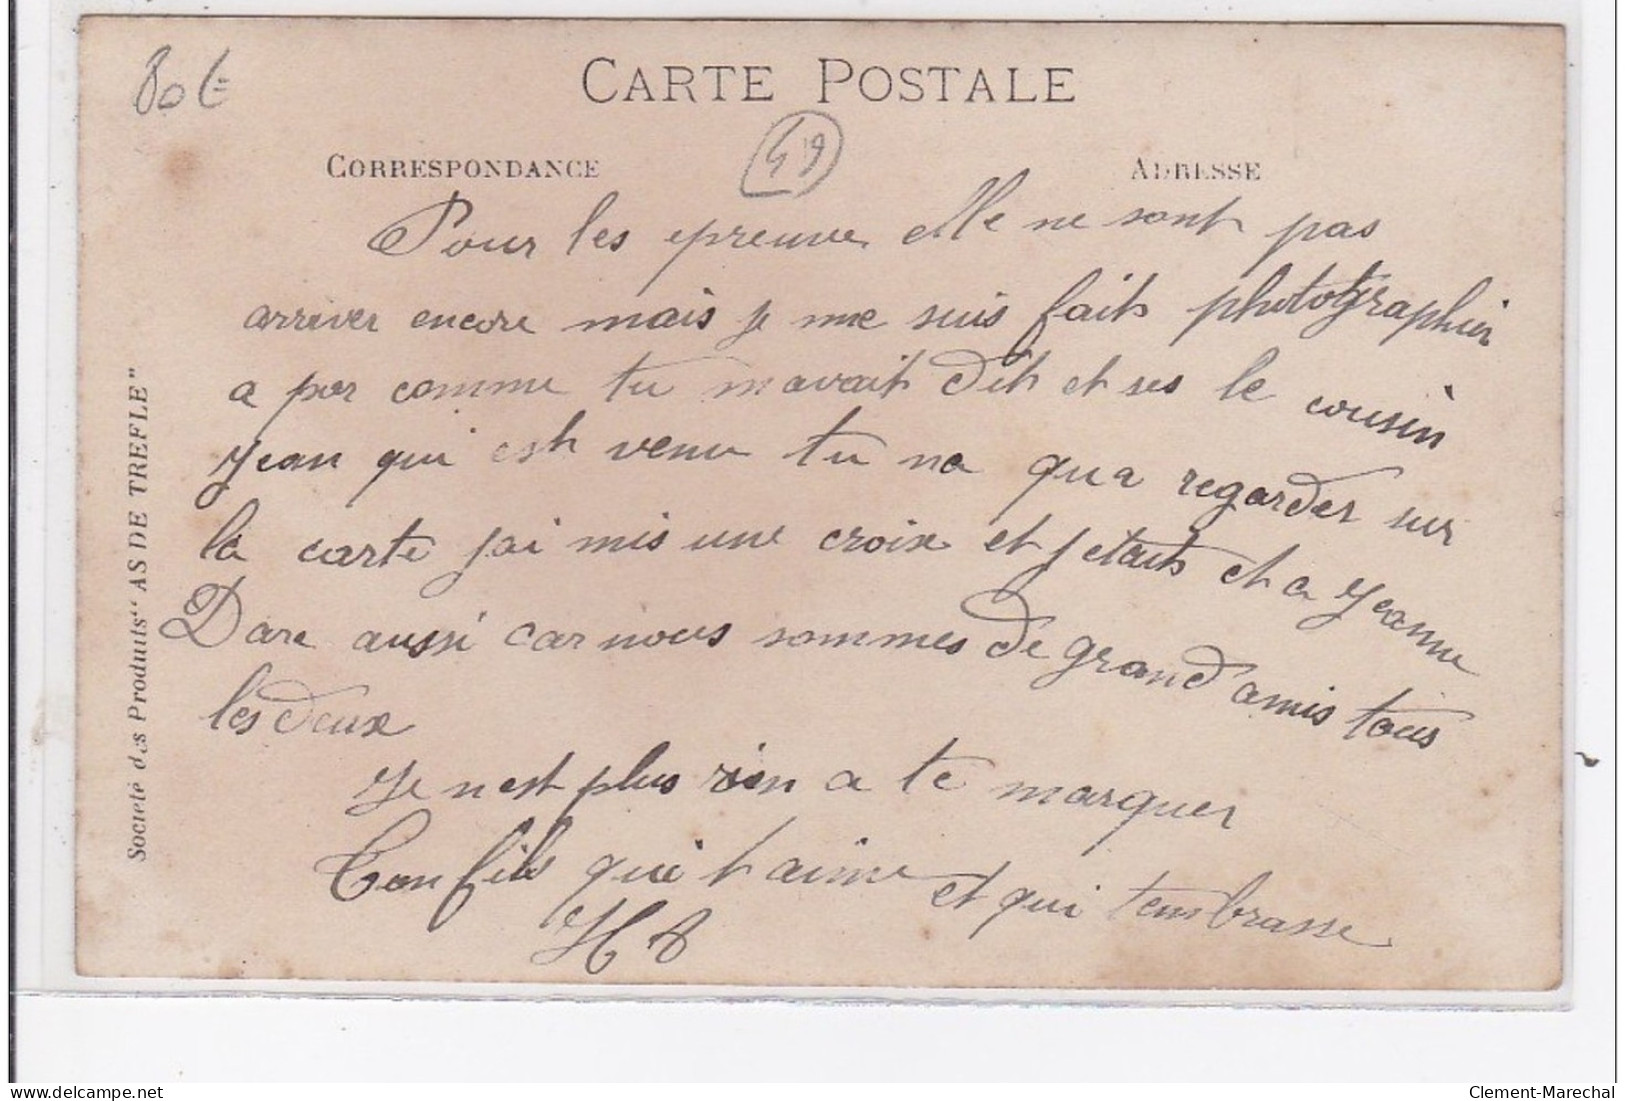 80 €
CARTE POSTALE
49
CORRESPONDANCE
ADRESSE
Pour les epreuve elle ne sont pas
arriver encore mais je me suis faits photographier
a por comme tu mavait dit et ses le cousin
Jean qui est venu tu na qua regarder sur
la carte jai mis une croix et jetaits et a Jeanne
Dare aussi car nous sommes de grand amis tous
les deux
Je nest plus rien a te marquer
Ton fils qui t aime et qui tembrasse
H A
Société des Produits "AS DE TREFLE"
delcampe.net
Clement-Marechal